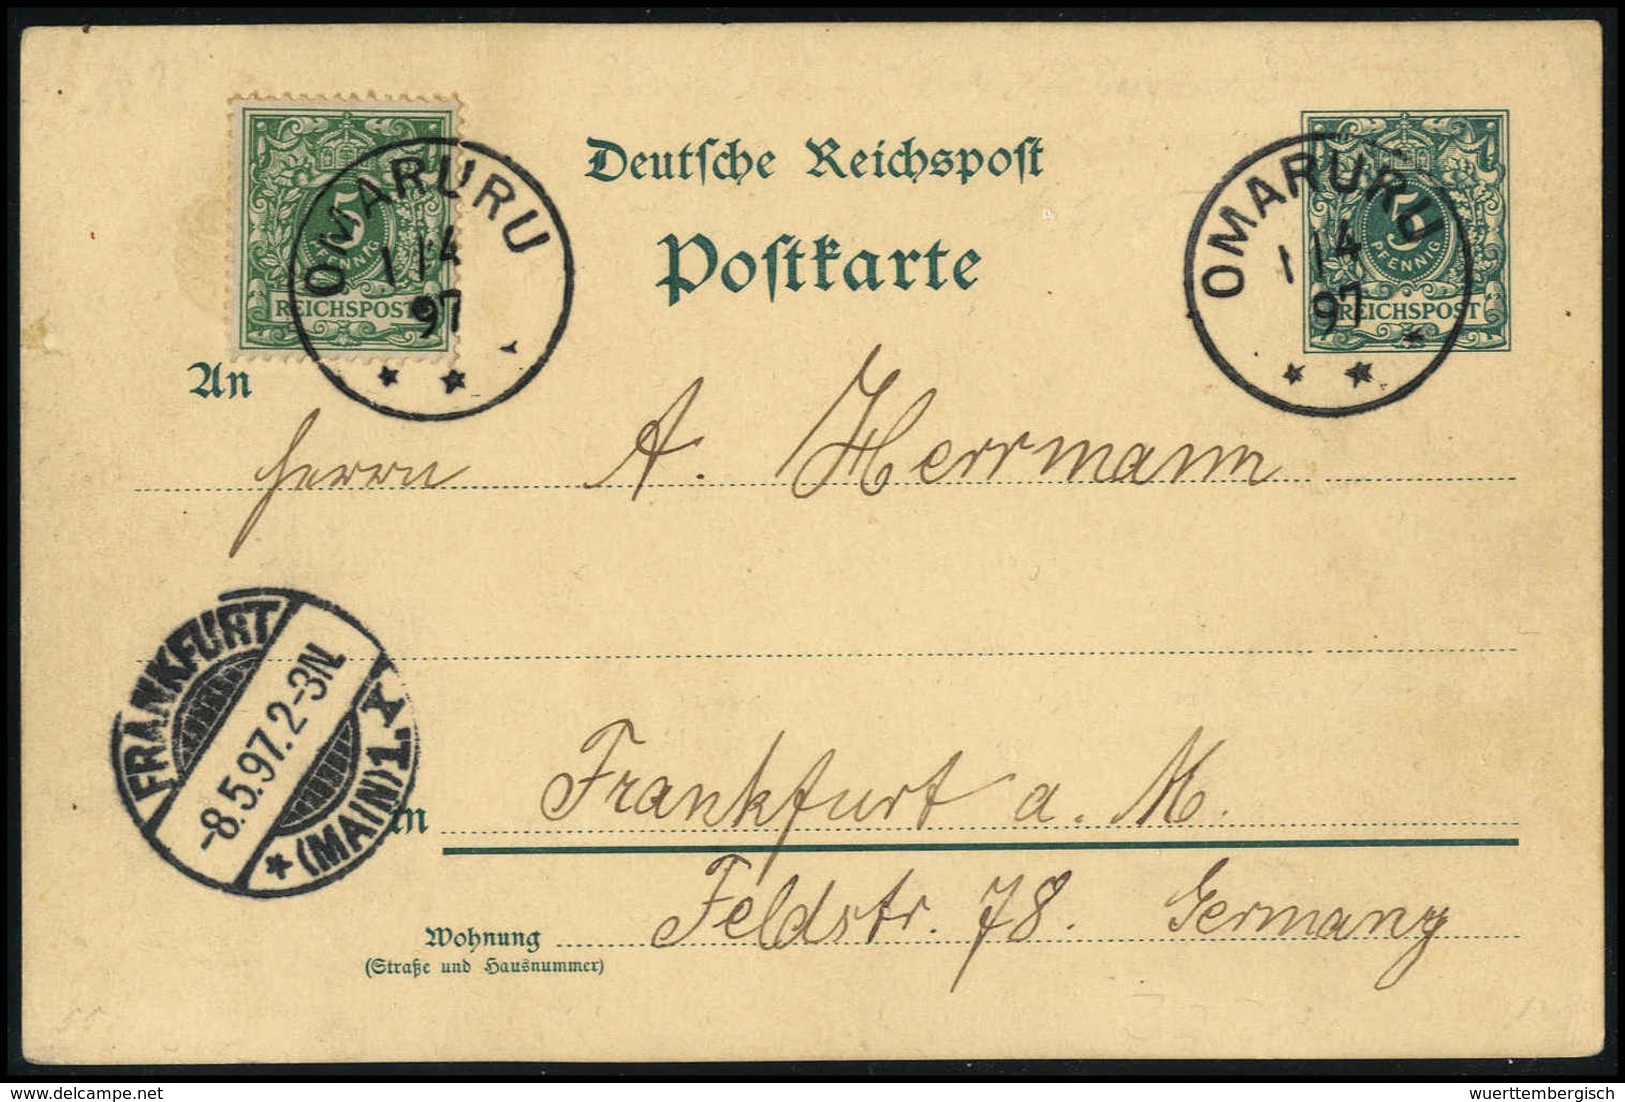 Deutsche Reichspost
Postkarte
5
PFENNIG
REICHSPOST
OMARURU
1 14
97
5
PFENNIG
REICHSPOST
OMARURU
1 14
97
An
Herrn A. Herrmann
FRANKFURT
-8.5.97.2-3N.
(MAIN) 1. X
in Frankfurt a. M.
Wohnung Feldstr. 78. Germany
(Straße und Hausnummer)
wuerttembergisch